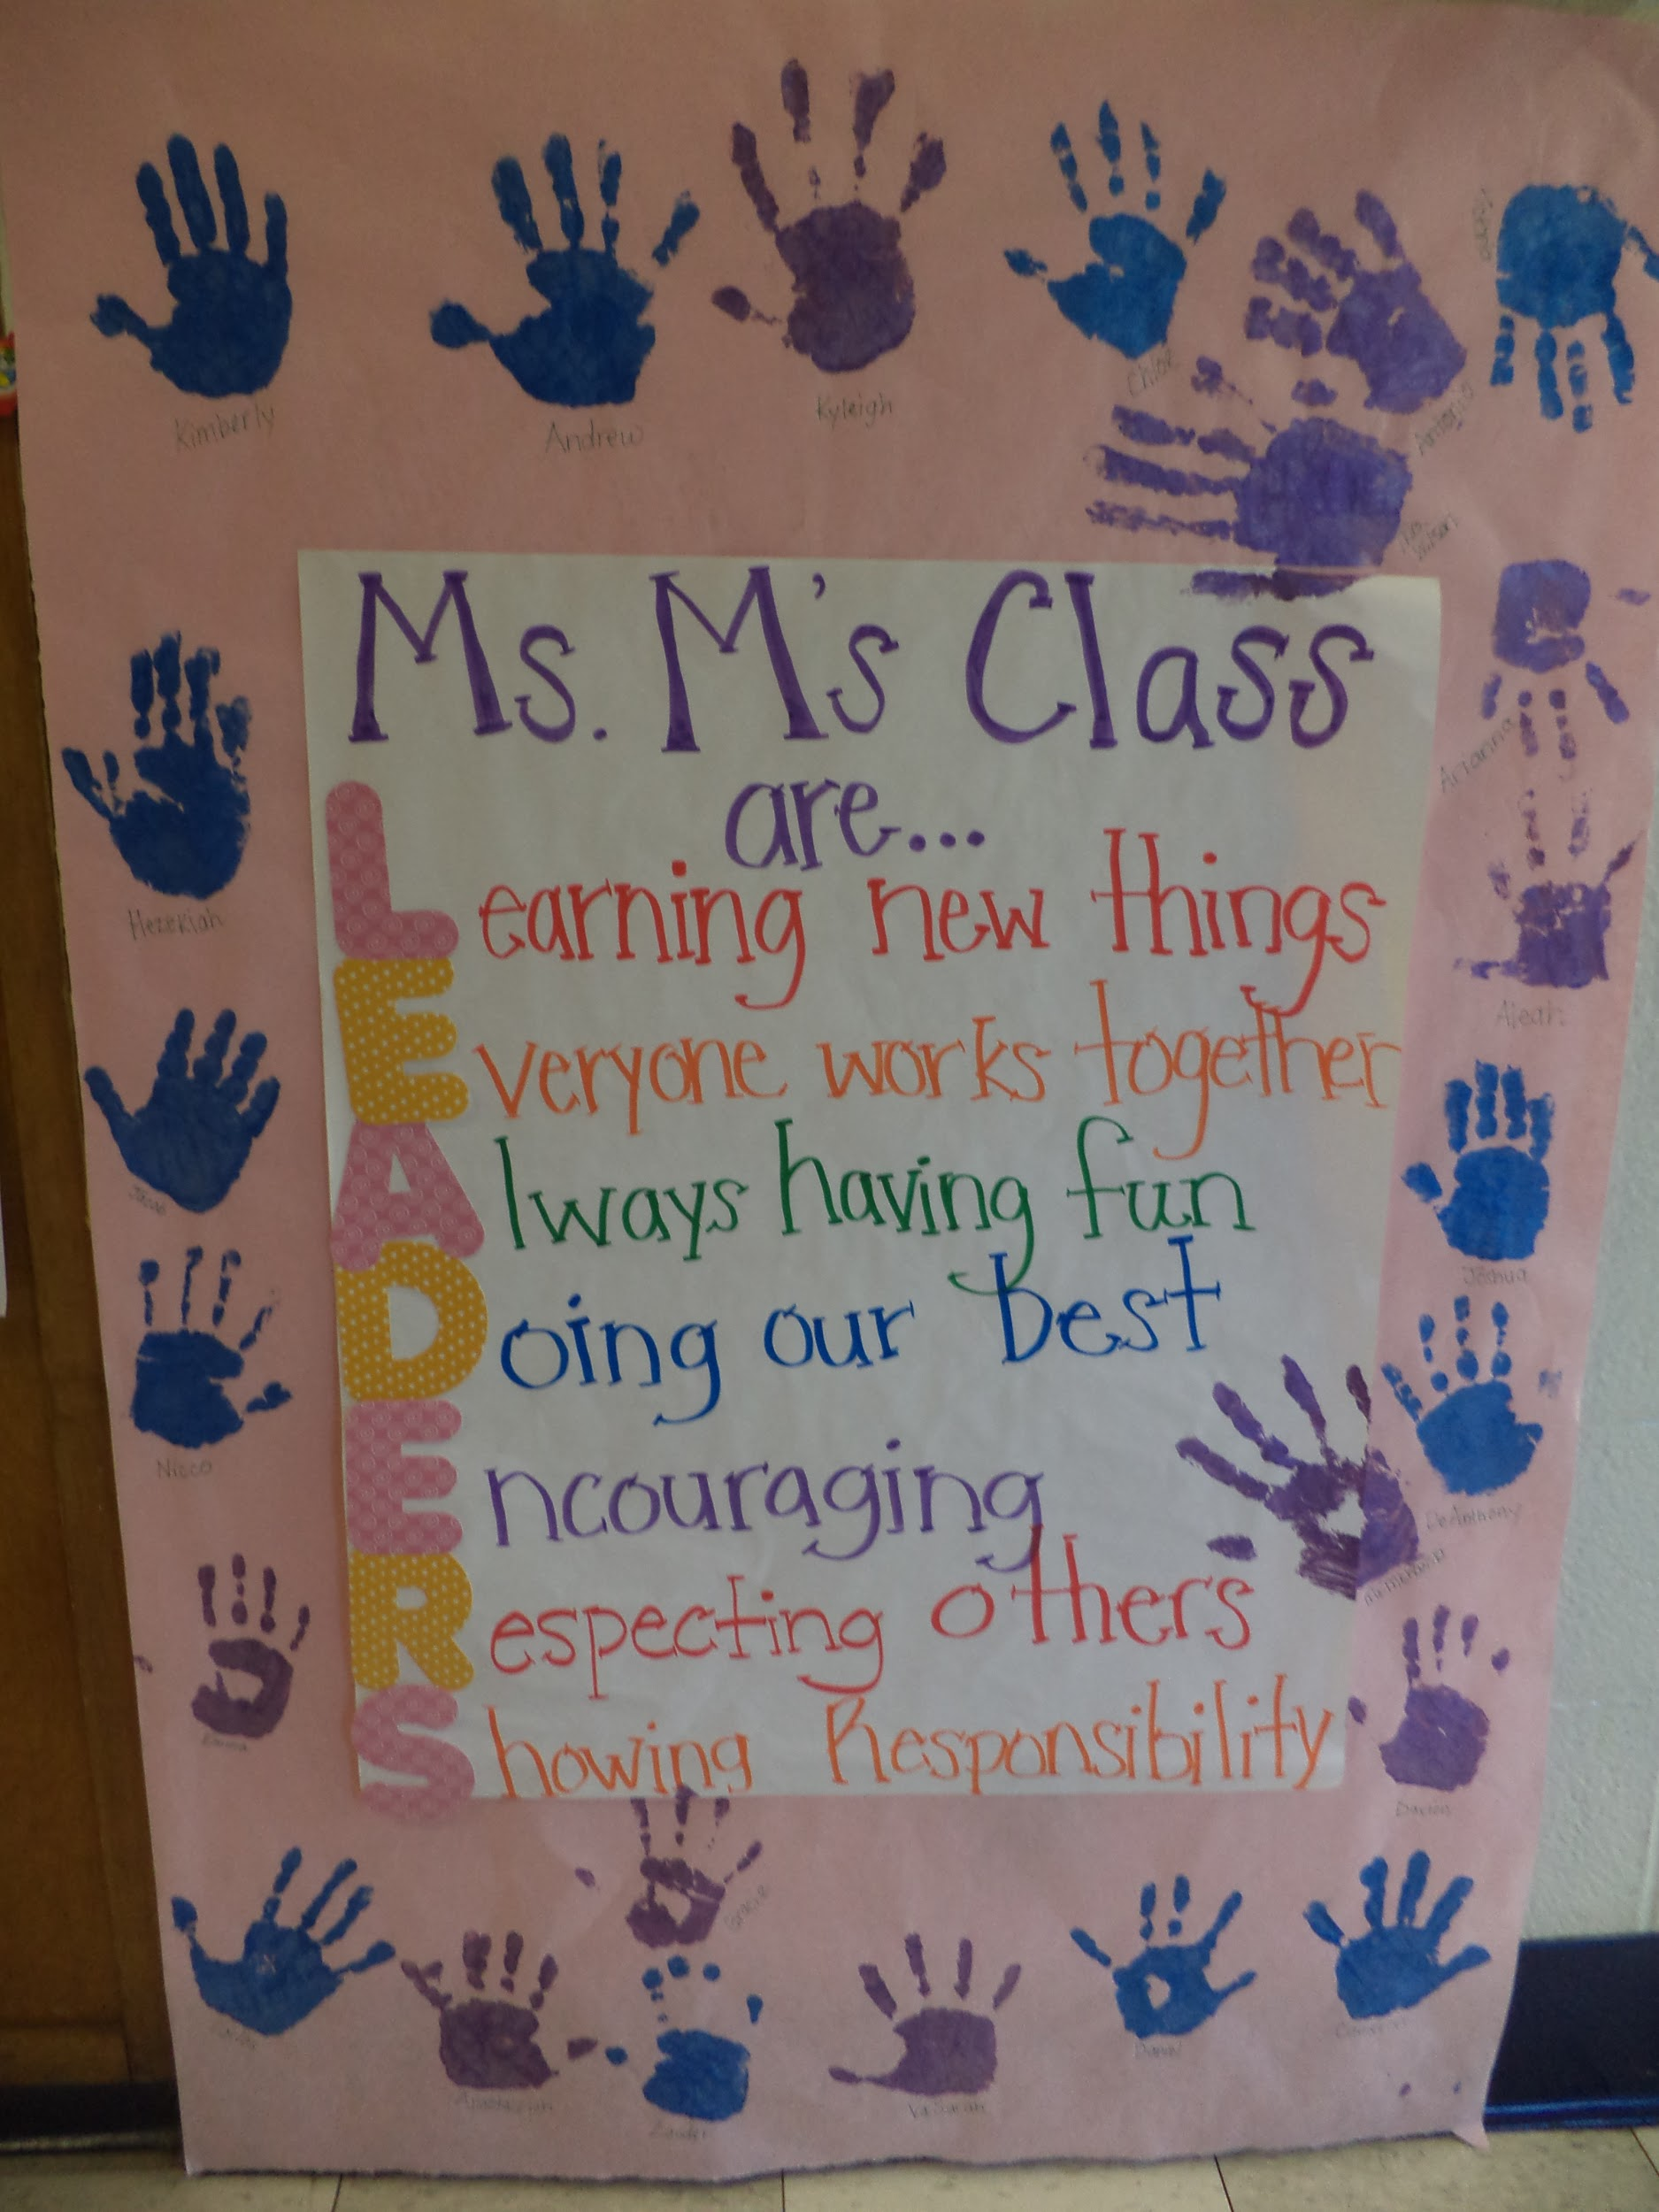 Kimberly
Andrew
Kyleigh
Chloe
Antonio
Ms. M's Class
are...
Learning new things
Everyone works together
Always having fun
Doing our best
Encouraging
Respecting others
Showing Responsibility
Hezekiah
Nicco
Arianna
Aleah
Joshua
DeAnthony
Gracie
Daniel